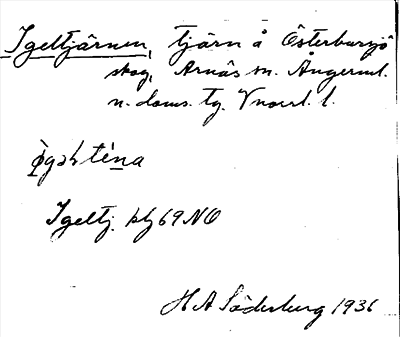 Igeltjärnen, tjärn å Österbursjö
skog, Arnäs sn. Ångerml.
n. doms. tg. Vnorrl. l.
Igeltj. blz 69 NO
H A Söderberg 1936